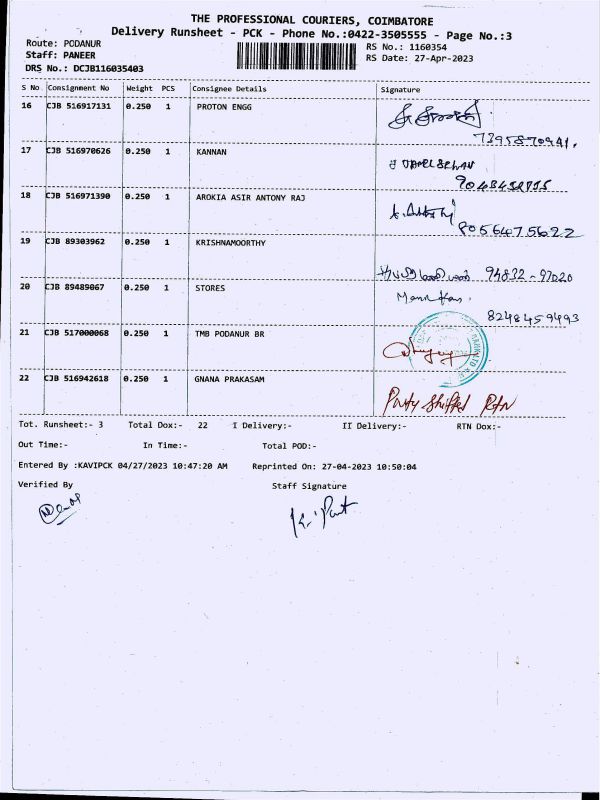 THE PROFESSIONAL COURIERS, COIMBATORE
Delivery Runsheet - PCK - Phone No.:0422-3505555 - Page No.:3
Route: PODANUR
Staff: PANEER
DRS No.: DCJB116035403
RS No.: 1160354
RS Date: 27-Apr-2023
S No. Consignment No Weight PCS Consignee Details Signature
16 CJB 516917131 0.250 1 PROTON ENGG
7395870941.
17 CJB 516970626 0.250 1 KANNAN
18 CJB 516971390 0.250 1 AROKIA ASIR ANTONY RAJ
8056475622
19 CJB 89303962 0.250 1 KRISHNAMOORTHY
94832-97020
20 CJB 89489067 0.250 1 STORES
8248459493
21 CJB 517000068 0.250 1 TMB PODANUR BR
22 CJB 516942618 0.250 1 GNANA PRAKASAM
Party Shifted RTN
Tot. Runsheet:- 3 Total Dox:- 22 I Delivery:- II Delivery:- RTN Dox:-
Out Time:- In Time:- Total POD:-
Entered By :KAVIPCK 04/27/2023 10:47:20 AM Reprinted On: 27-04-2023 10:50:04
Verified By Staff Signature